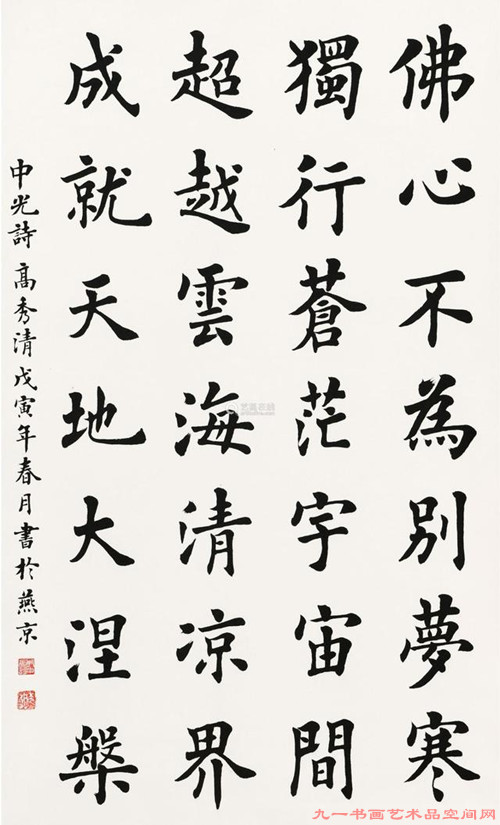 佛心不為別夢寒
獨行蒼茫宇宙間
超越雲海清凉界
成就天地大涅槃
申光詩 高秀清戊寅年春月書於燕京
九一书画艺术品空间网